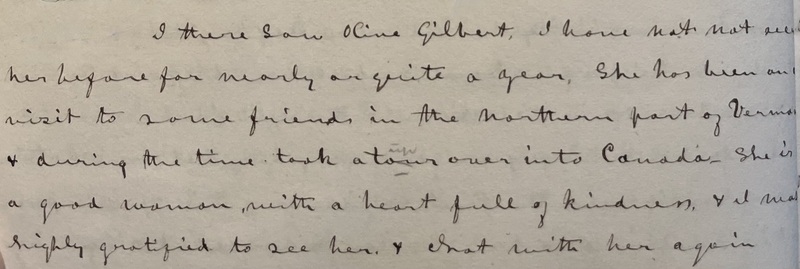 I there saw Olive Gilbert, I have not not see
her before for nearly or quite a year, She has been on
visit to some friends in the northern part of Vermo
& during the time took a tour over into Canada - She is
a good woman, with a heart full of kindness, & I was
highly gratified to see her, & chat with her again